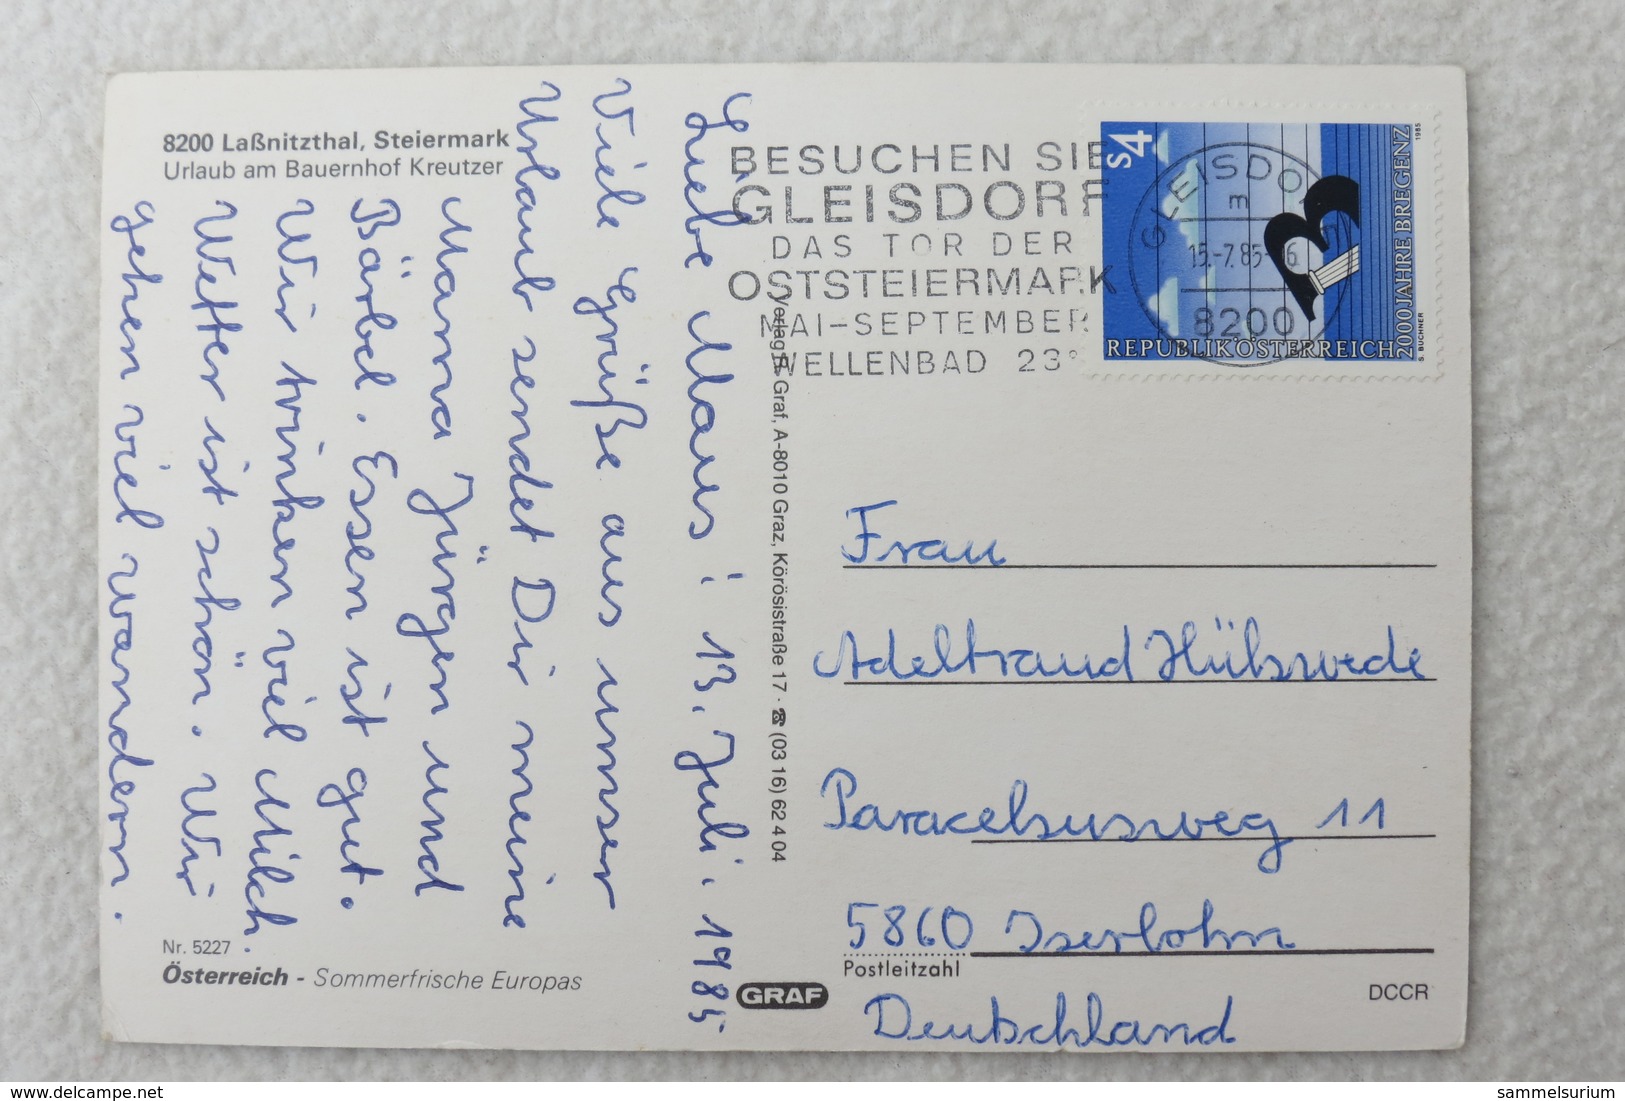 8200 Laßnitzthal, Steiermark
Urlaub am Bauernhof Kreutzer
Liebe Maus! 13. Juli. 1985
Viele Grüße aus unser
Urlaub sendet Dir meine
Mama Jürgen und
Bärbel. Essen ist gut.
Wir trinken viel Milch.
Wetter ist schön. Wir
gehen viel wandern.
Nr. 5227
Österreich - Sommerfrische Europas
Verlag H. Graf, A-8010 Graz, Körösistraße 17 · ☎ (03 16) 62 4 04
GRAF
BESUCHEN SIE
GLEISDORF
DAS TOR DER
OSTSTEIERMARK
MAI-SEPTEMBER
WELLENBAD 23°
S4
2000 JAHRE BREGENZ
1985
S. BUCHNER
REPUBLIK ÖSTERREICH
GLEISDORF
m
15.-7.85-16
8200
Frau
Adeltraud Hülswede
Paracelsusweg 11
5860 Iserlohn
Postleitzahl
Deutschland
DCCR
sammelsurium